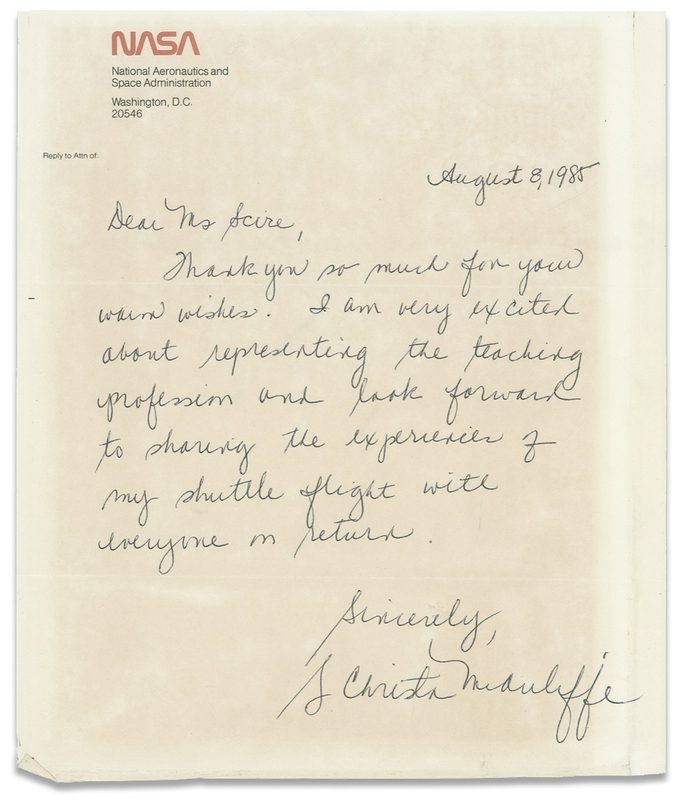 NASA
National Aeronautics and
Space Administration
Washington, D.C.
20546
Reply to Attn of:
August 8, 1985
Dear Ms Scire,
Thank you so much for your
warm wishes. I am very excited
about representing the teaching
profession and look forward
to sharing the experiences of
my shuttle flight with
everyone on return.
Sincerely,
S Christa McAuliffe